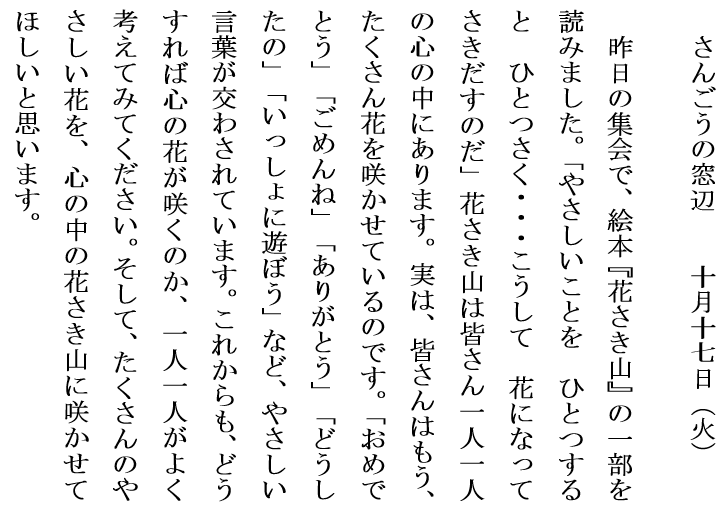 さんごうの窓辺　　十月十七日（火）
　昨日の集会で、絵本『花さき山』の一部を
読みました。「やさしいことを　ひとつする
と　ひとつさく・・・こうして　花になって
さきだすのだ」花さき山は皆さん一人一人
の心の中にあります。実は、皆さんはもう、
たくさん花を咲かせているのです。「おめで
とう」「ごめんね」「ありがとう」「どうし
たの」「いっしょに遊ぼう」など、やさしい
言葉が交わされています。これからも、どう
すれば心の花が咲くのか、一人一人がよく
考えてみてください。そして、たくさんのや
さしい花を、心の中の花さき山に咲かせて
ほしいと思います。